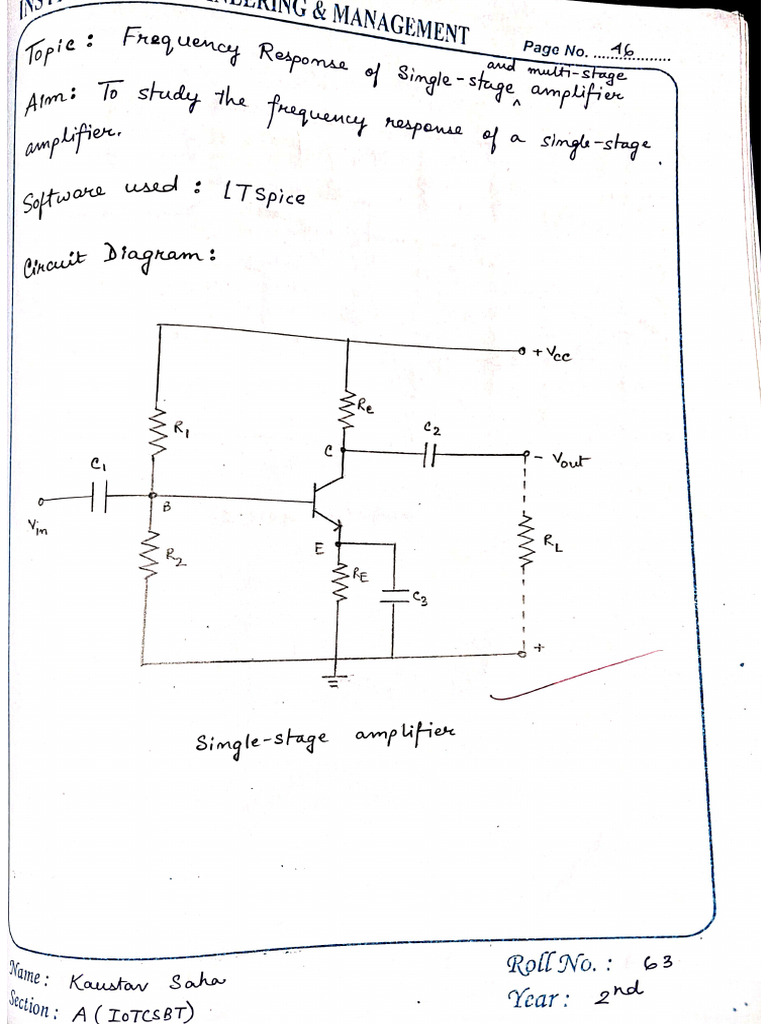 & MANAGEMENT
Page No. 46
Topic: Frequency Response of Single-stage and multi-stage amplifier
Aim: To study the frequency response of a single-stage
amplifier.
Software used: LTSpice
Circuit Diagram:
+ Vcc
Re
R1
C2
C
- Vout
C1
B
Vin
RL
E
R2
RE
C3
+
Single-stage amplifier
Name: Kaustav Saha
Roll No.: 63
Section: A (IOTCSBT)
Year: 2nd